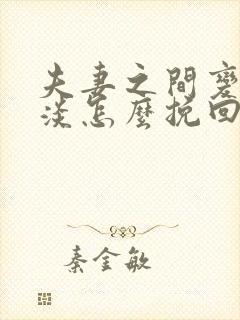 夫妻之間變
淡怎麼挽回
秦金敏